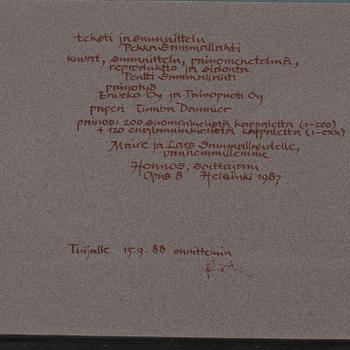 teksti ja suunnittelu
Pekka Sammallahti
kuvat, suunnittelu, painomenetelmä,
reproduktio ja sidonta
Pentti Sammallahti
painotyö
Erweko Oy ja Painopuoti Oy
paperi Tumba Daumier
painos: 200 suomenkielistä kappaletta (1-200)
+ 120 englanninkielistä kappaletta (I-CXX)
Maire ja Lars Sammallahdelle,
vanhemmillemme
soittajani
Opus 8 Helsinki 1987
Tuijalle 15.9.88 onnitteluin